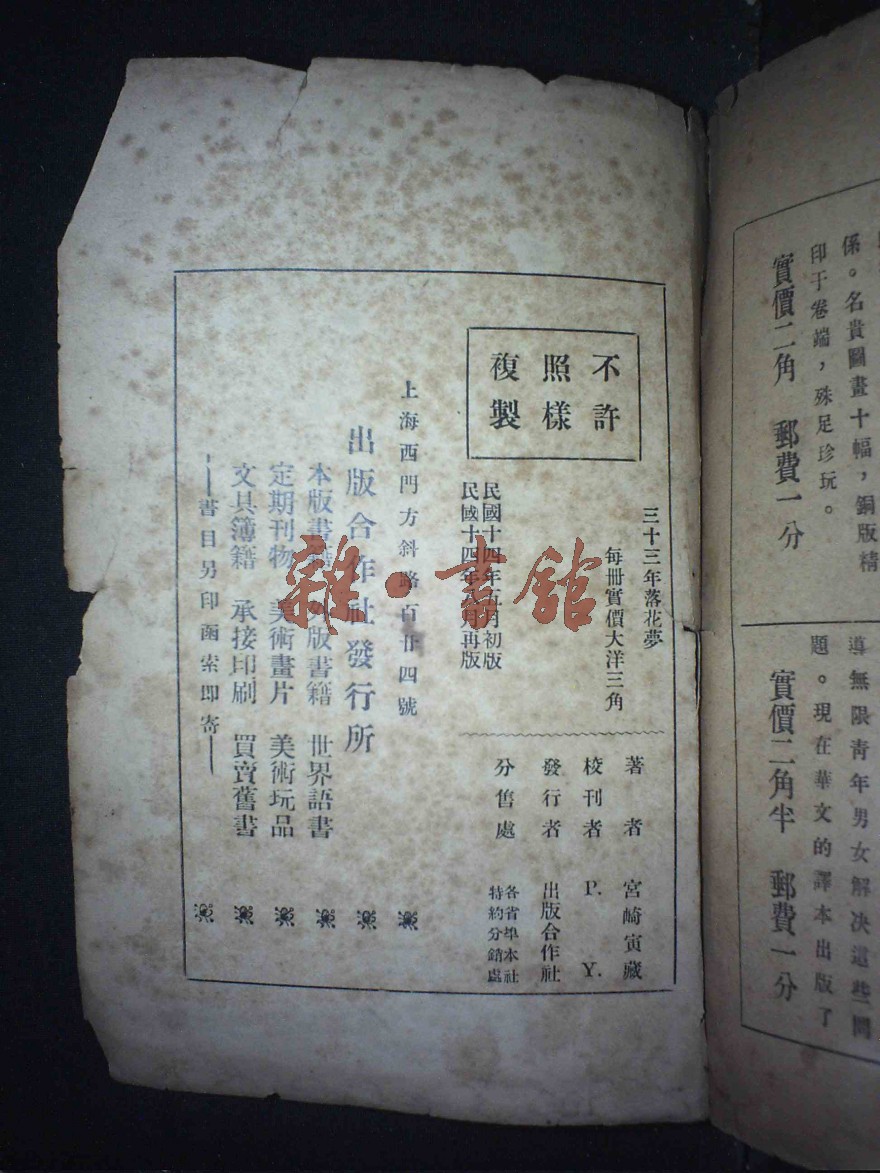 係。名貴圖畫十幅，銅版精
印于卷端，殊足珍玩。
實價二角 郵費一分
導無限青年男女解決這些問
題。現在華文的譯本出版了
實價二角半 郵費一分
不許
照樣
複製
三十三年落花夢
每冊實價大洋三角
民國十四年五月初版
民國十四年八月再版
著者 宮崎寅藏
校刊者 P. Y.
發行者 出版合作社
分售處 各省埠本社
特約分銷處
上海西門方斜路百廿四號
出版合作社發行所
本版書籍 外版書籍 世界語書
定期刊物 美術畫片 美術玩品
文具簿籍 承接印刷 買賣舊書
——書目另印函索即寄——
雜·書館